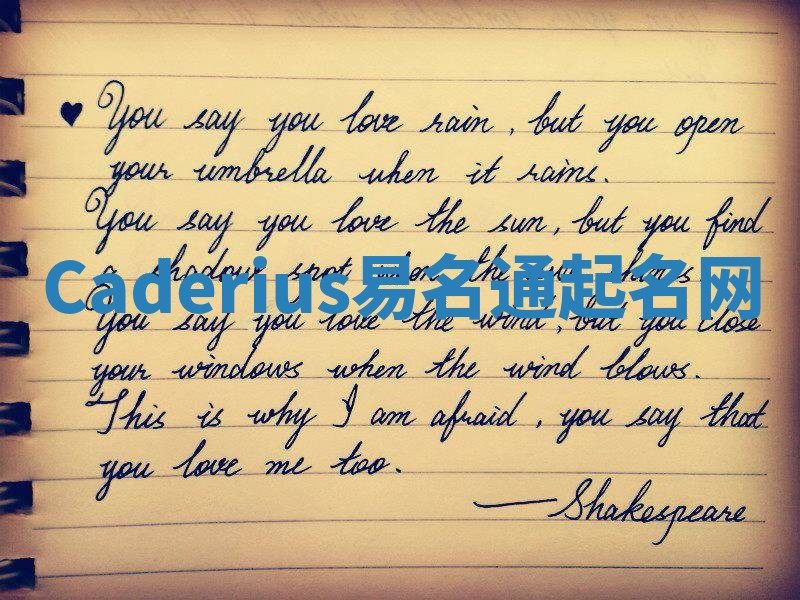 ♥ You say you love rain, but you open
your umbrella when it rains.
You say you love the sun, but you find
a shadow spot when the sun shines
Caderius易名通起名网
You say you love the wind, but you close
your windows when the wind blows.
This is why I am afraid, you say that
you love me too.
—Shakespeare